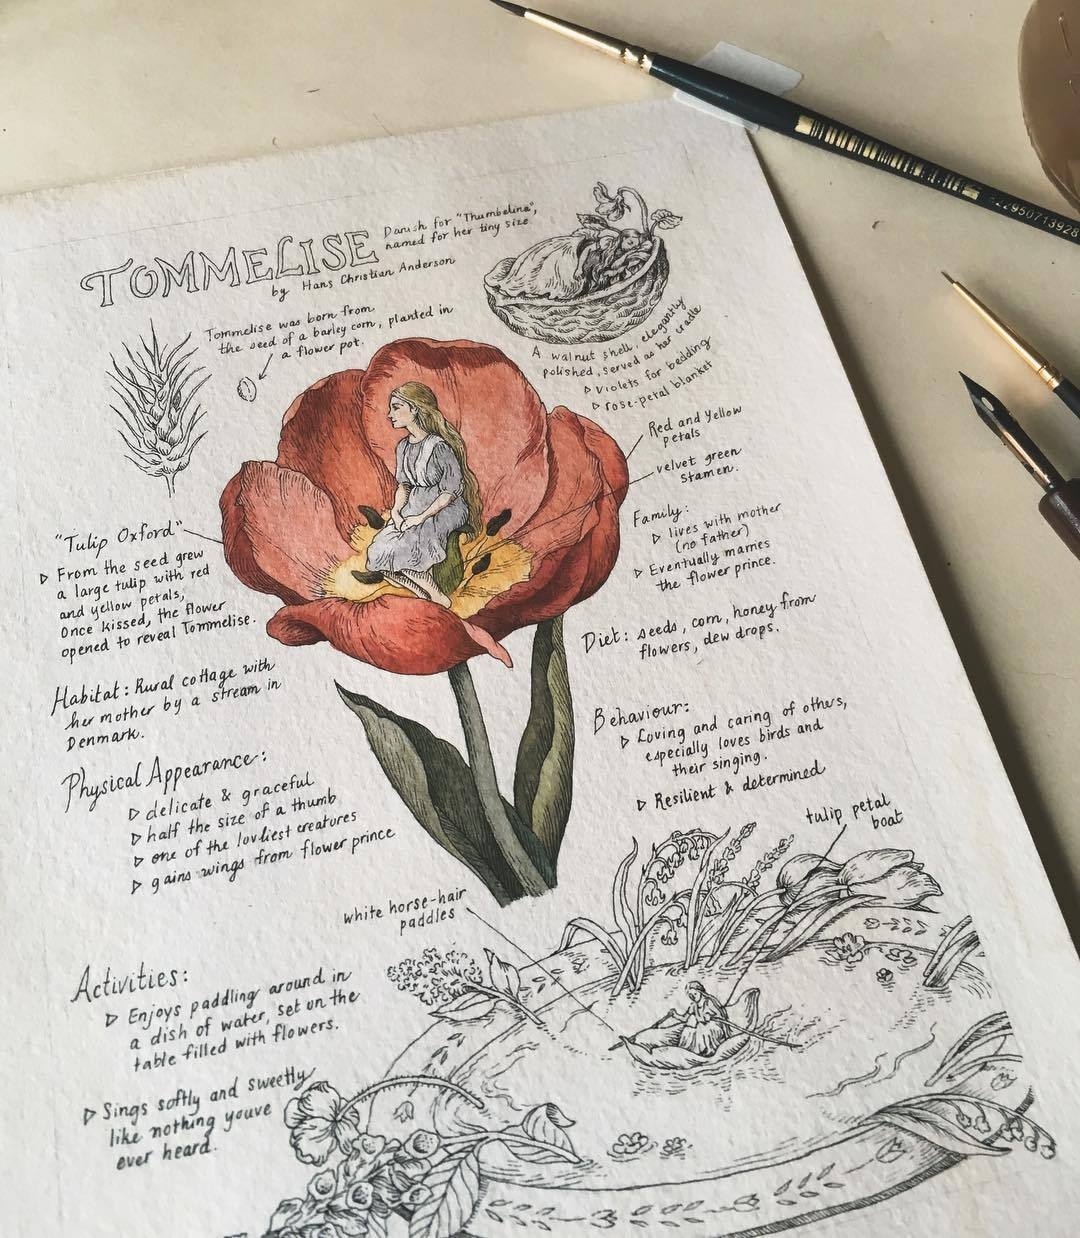 TOMMELISE
Danish for "Thumbelina",
named for her tiny size
by Hans Christian Anderson
Tommelise was born from
the seed of a barley corn, planted in
a flower pot.
A walnut shell, elegantly
polished, served as her cradle
▷ violets for bedding
▷ rose-petal blanket
Red and Yellow
petals
velvet green
stamen.
"Tulip Oxford"
▷ From the seed grew
a large tulip with red
and yellow petals,
Once kissed, the flower
opened to reveal Tommelise.
Family:
▷ lives with mother
(no father)
▷ Eventually marries
the flower prince.
Diet: seeds, corn, honey from
flowers, dew drops.
Habitat: Rural cottage with
her mother by a stream in
Denmark.
Behaviour:
▷ Loving and caring of others,
especially loves birds and
their singing.
▷ Resilient & determined
Physical Appearance:
▷ delicate & graceful
▷ half the size of a thumb
▷ one of the lovliest creatures
▷ gains wings from flower prince
tulip petal
boat
white horse-hair
paddles
Activities:
▷ Enjoys paddling around in
a dish of water, set on the
table filled with flowers.
▷ Sings softly and sweetly
like nothing youve
ever heard.